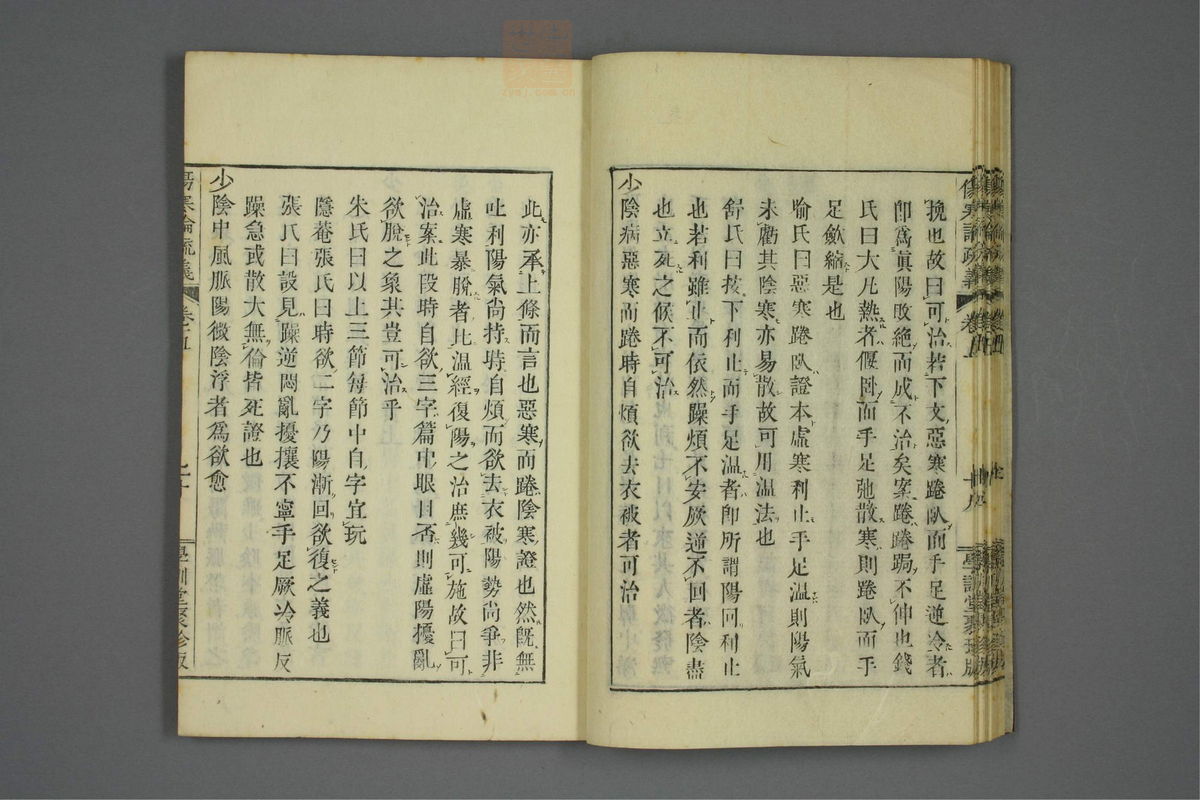 挽也故曰可治若下文惡寒踡臥而手足逆冷者
卽爲眞陽敗絶而成不治矣案踡踡跼不伸也錢
氏曰大凡熱者偃臥而手足弛散寒則踡臥而手
足斂縮是也
喩氏曰惡寒踡臥證本虛寒利止手足温則陽氣
未虧其陰寒亦易散故可用温法也
舒氏曰按下利止而手足温者卽所謂陽回利止
也若利雖止而依然躁煩不安厥逆不回者陰盡
也立死之候不可治
少陰病惡寒而踡時自煩欲去衣被者可治
此亦承上條而言也惡寒而踡陰寒證也然旣無
吐利陽氣尚持時自煩而欲去衣被陽勢尚爭非
虛寒暴脫者比温經復陽之治庶幾可施故曰可
治案此段時自欲三字篇中眼目否則虛陽擾亂
欲脫之象其豈可治乎
朱氏曰以上三節每節中自字宜玩
隱菴張氏曰時欲二字乃陽漸回欲復之義也
張氏曰設見躁逆悶亂擾攘不寧手足厥冷脈反
躁急或散大無倫皆死證也
少陰中風脈陽微陰浮者爲欲愈
傷寒論疏義
卷五
學訓堂聚珍版